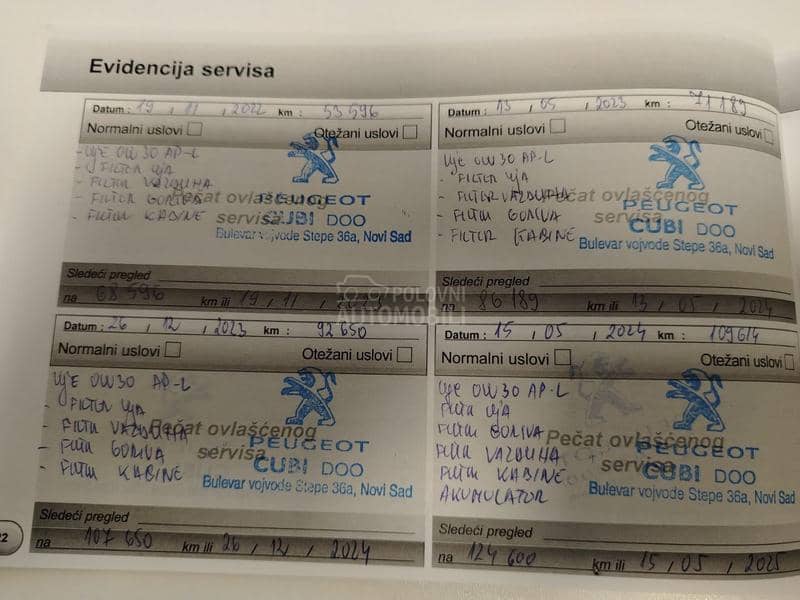 Evidencija servisa
Datum : 19 , 11 , 2022 km : 53 596
Normalni uslovi Otežani uslovi
- UJE OW30 AP-L
- FILTER UJA
- FILTER VAZDUHA
- FILTER GORIVA
- FILTER KABINE
Pečat ovlašćenog
servisa
PEUGEOT
CUBI DOO
Bulevar vojvode Stepe 36a, Novi Sad
Sledeći pregled
na 68 596 km ili 19 , 11 ,
Datum : 13 , 05 , 2023 km : 71 189
Normalni uslovi Otežani uslovi
UJE OW30 AP-L
- FILTER UJA
- FILTER VAZDUHA
- FILTER GORIVA
- FILTER KABINE
Pečat ovlašćenog
servisa
PEUGEOT
CUBI DOO
Bulevar vojvode Stepe 36a, Novi Sad
Sledeći pregled
na 86 189 km ili 13 , 05 , 2024
POLOVNI
AUTOMOBILI
Datum : 26 , 12 , 2023 km : 92 650
Normalni uslovi Otežani uslovi
UJE OW30 AP-L
- FILTER UJA
- FILTER VAZDUHA
- FILTER GORIVA
- FILTER KABINE
Pečat ovlašćenog
servisa
PEUGEOT
CUBI DOO
Bulevar vojvode Stepe 36a, Novi Sad
Sledeći pregled
na 107 650 km ili 26 , 12 , 2024
Datum : 15 , 05 , 2024 km : 109614
Normalni uslovi Otežani uslovi
UJE OW30 AP-L
FILTER UJA
FILTER GORIVA
FILTER VAZDUHA
FILTER KABINE
AKUMULATOR
Pečat ovlašćenog
servisa
PEUGEOT
CUBI DOO
Bulevar vojvode Stepe 36a, Novi Sad
Sledeći pregled
na 124 600 km ili 15 , 05 , 2025